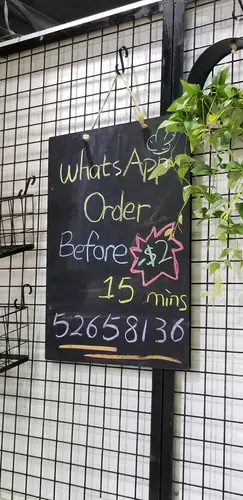 WhatsApp
Order
Before $2
15 mins
52658136